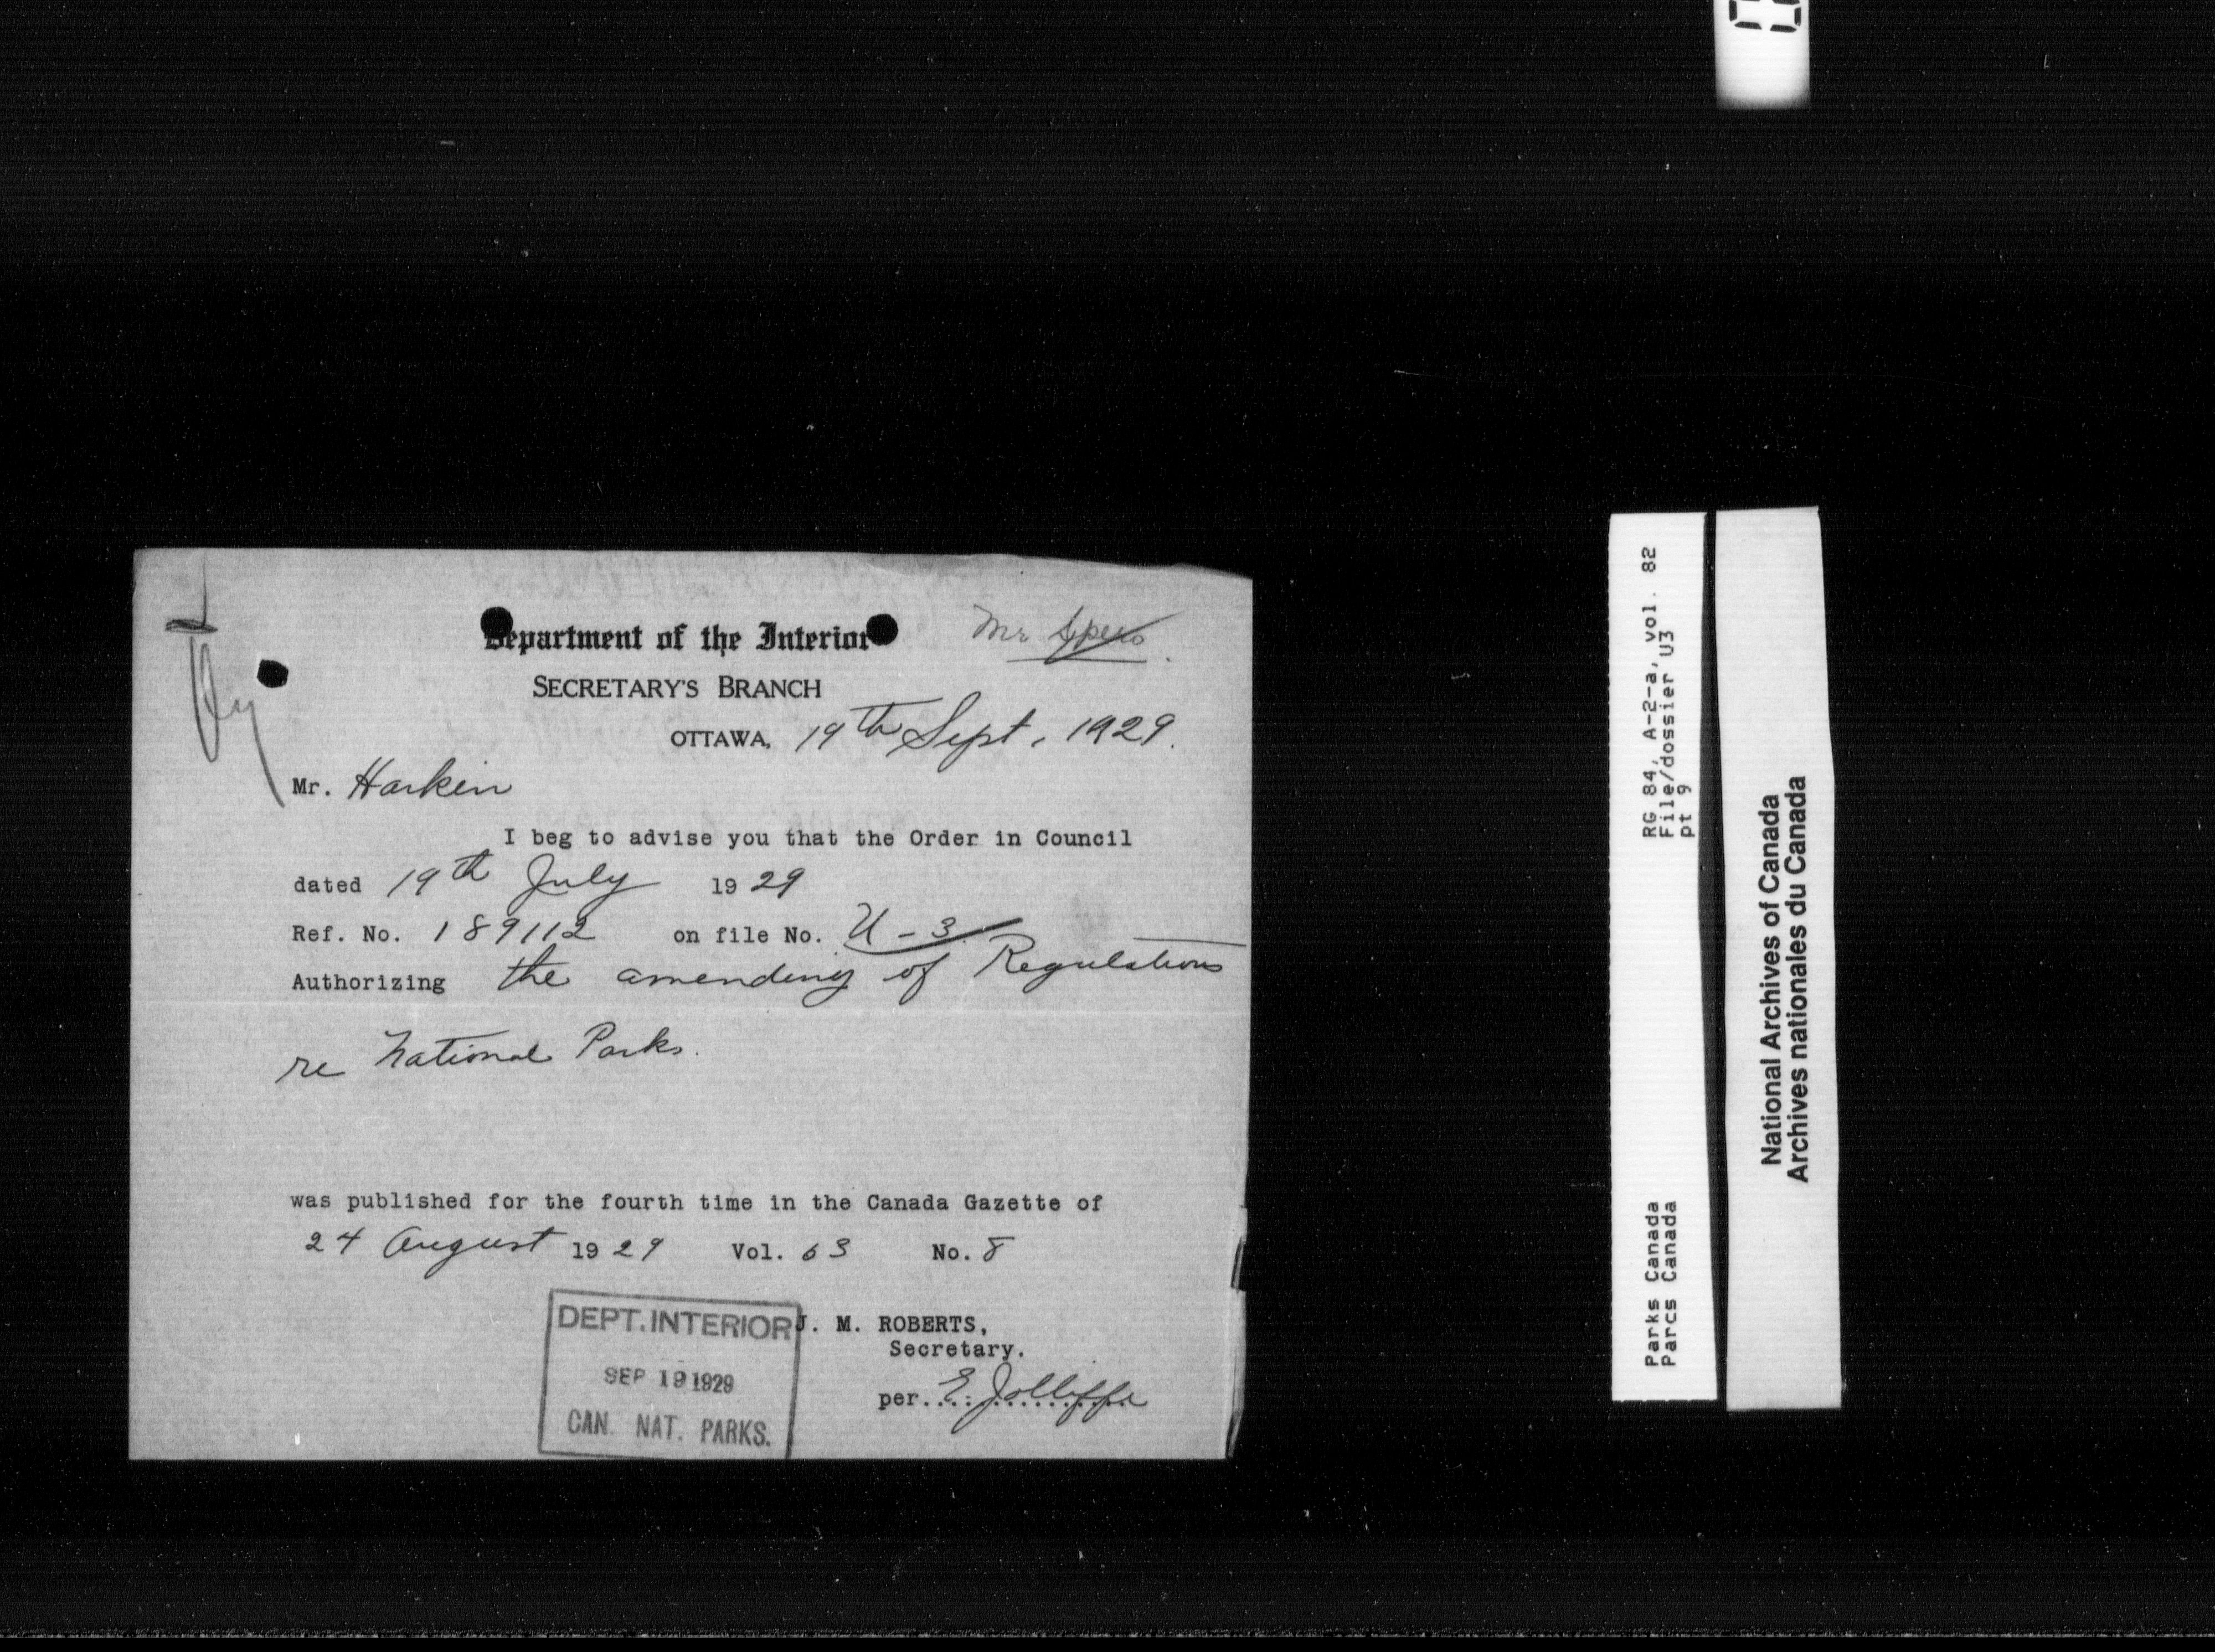 Department of the Interior
Mr Spero
SECRETARY'S BRANCH
OTTAWA, 19th Sept, 1929.
Mr. Harkin
I beg to advise you that the Order in Council
dated 19th July 1929
Ref. No. 189112 on file No. U-3
Authorizing the amending of Regulations
re National Parks.
was published for the fourth time in the Canada Gazette of
24 August 1929 Vol. 63 No. 8
DEPT. INTERIOR
SEP 19 1929
CAN. NAT. PARKS.
J. M. ROBERTS,
Secretary.
per.. E. Jolliffe
RG 84, A-2-a, vol. 82
File/dossier U3
pt 9
Parks Canada
Parcs Canada
National Archives of Canada
Archives nationales du Canada